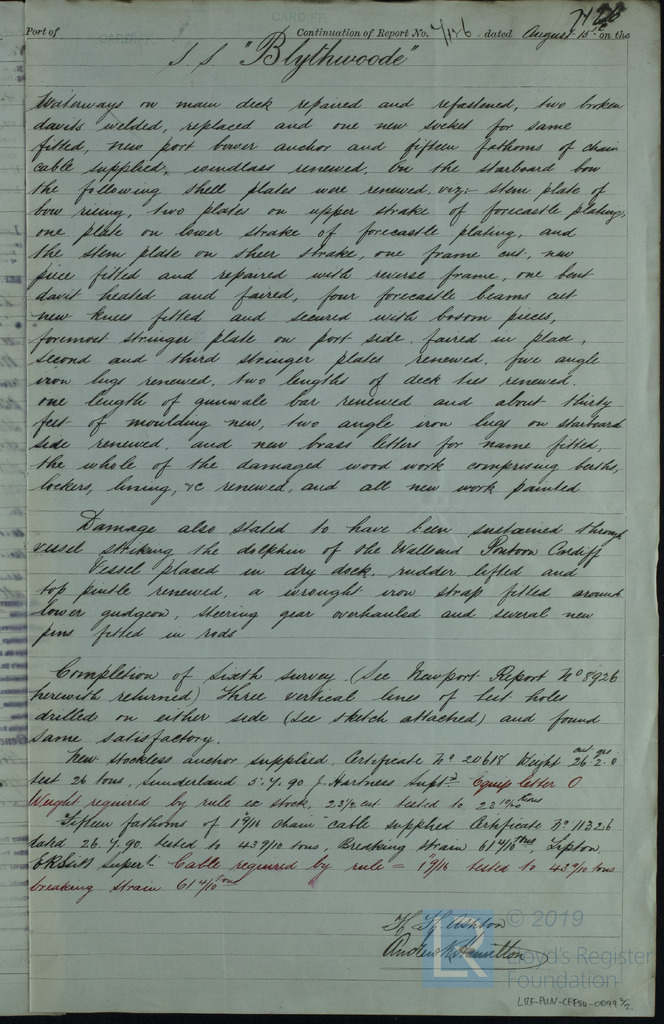 7126
CARDIFF
Port of CARDIFF Continuation of Report No. 7126 dated August 15th on the
S S "Blythwoode"
Waterways on main deck repaired and refastened, two broken
davits welded, replaced and one new socket for same
fitted, new port bower anchor and fifteen fathoms of chain
cable supplied, windlass renewed. On the starboard bow
the following shell plates were renewed, viz: stem plate of
bow rising, two plates on upper strake of forecastle plating,
one plate on lower strake of forecastle plating, and
the stem plate on sheer strake, one frame cut, new
piece fitted and repaired with reverse frame, one bent
davit heated and faired, four forecastle beams cut
new knees fitted and secured with bosom pieces,
foremost stringer plate on port side faired in place,
second and third stringer plates renewed, five angle
iron lugs renewed, two lengths of deck ties renewed.
one length of gunwale bar renewed and about thirty
feet of moulding new, two angle iron lugs on starboard
side renewed, and new brass letters for name fitted,
the whole of the damaged wood work comprising berths,
lockers, lining, &c renewed, and all new work painted
Damage also stated to have been sustained through
vessel striking the dolphin of the Wallsend Pontoon Cardiff
Vessel placed in dry dock, rudder lifted and
top pintle renewed, a wrought iron strap fitted around
lower gudgeon, steering gear overhauled and several new
pins fitted in rods
Completion of sixth survey. (See Newport Report No 8926
herewith returned) Three vertical lines of test holes
drilled on either side (see sketch attached) and found
same satisfactory.
New stockless anchor supplied. Certificate No 20618 Weight 26 cwt 2 qrs 0
test 26 tons, Sunderland 5.7.90 J. Hartness Supt. Equip letter O
Weight required by rule ex stock, 23½ cwt tested to
Fifteen fathoms of 1 9/16 chain cable supplied Certificate No 11326
dated 26.7.90 tested to 43 9/10 tons, Breaking strain 61 4/10 tons, Tipton
Supert. Cable required by rule = 1 9/16 tested to 43 9/10 tons
breaking strain 61 4/10 tons
H. H. Ashton
Andrew K. Hamilton
LR © 2019
Lloyd's Register
Foundation
LRF-PUN-CFF86-0099 ½